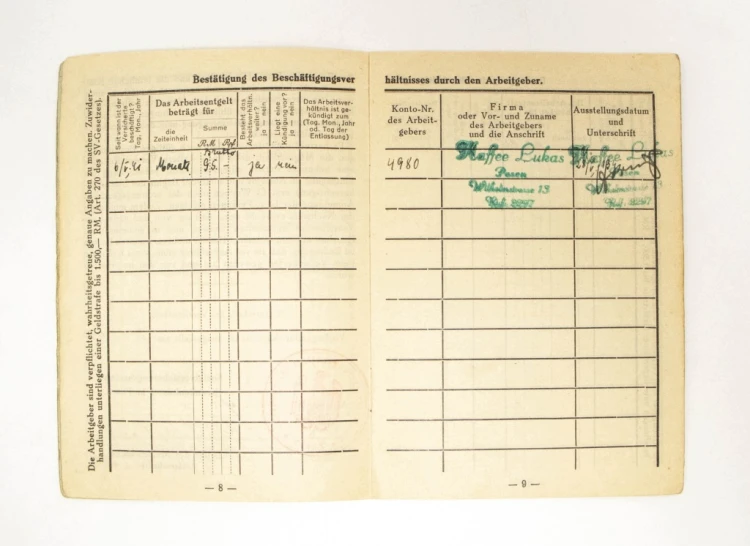 Bestätigung des Beschäftigungsverhältnisses durch den Arbeitgeber.
Die Arbeitgeber sind verpflichtet, wahrheitsgetreue, genaue Angaben zu machen. Zuwider-
handlungen unterliegen einer Geldstrafe bis 1.500,— RM. (Art. 270 des SV-Gesetzes).
Seit wann ist der
Versicherte
beschäftigt?
Tag, Mon., Jahr
Das Arbeitsentgelt
beträgt für
die
Zeiteinheit
Summe
RM. Rpf
Besteht das
Arbeitsverhältn.
weiter?
ja — nein
Liegt eine
Kündigung vor?
ja — nein
Das Arbeitsver-
hältnis ist ge-
kündigt zum
(Tag, Mon., Jahr
od. Tag der
Entlassung)
Konto-Nr.
des Arbeit-
gebers
Firma
oder Vor- und Zuname
des Arbeitgebers
und die Anschrift
Ausstellungsdatum
und
Unterschrift
Brutto
Monatl. 95.- ja nein
4980
Kaffee Lukas
Posen
Wilhelmstrasse 13
Ruf. 2297
Kaffee Lukas
Posen
Wilhelmstrasse 13
Ruf. 2297
— 8 —
— 9 —